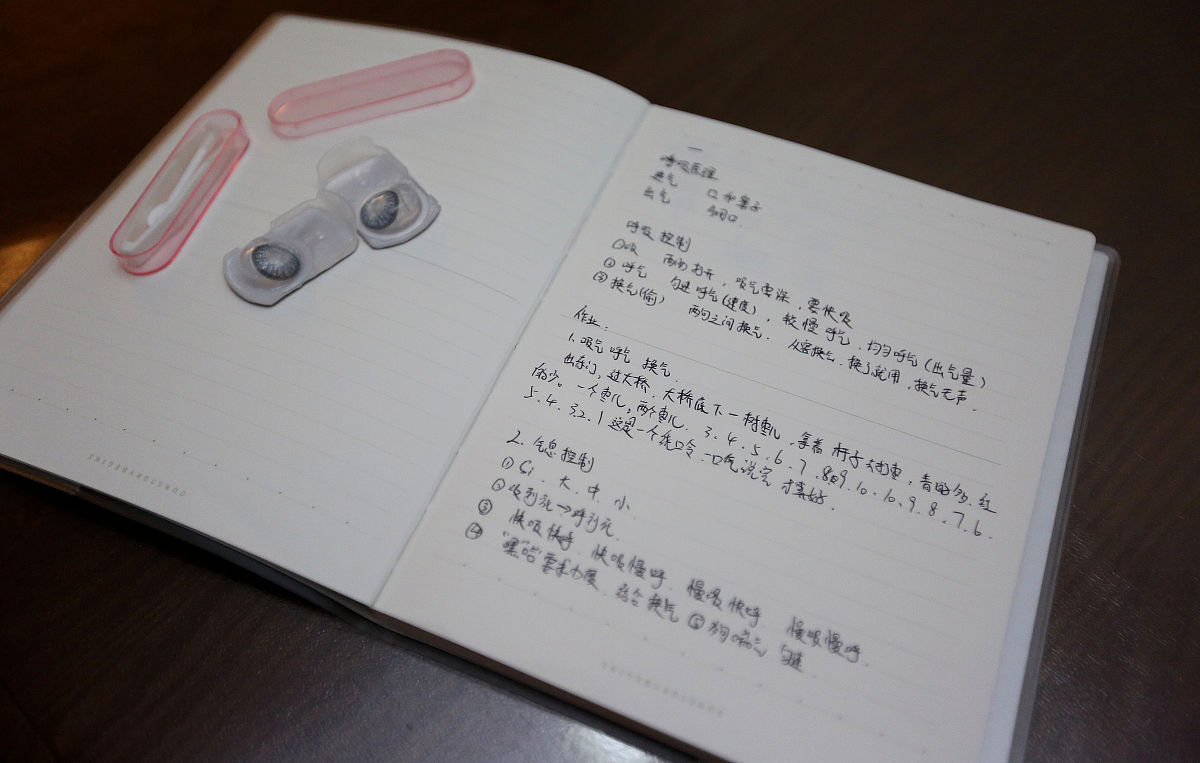 一
呼吸原理
换气 口和鼻子
出气 胸口
呼吸控制
①吸 两肋打开，吸气要深，要快吸
②呼气 匀速呼气(速度)，较慢呼气，均匀呼气(出气量)
③换气(偷) 两句之间换气. 从容换气. 换了就用，换气无声.
作业：
1. 吸气 呼气 换气.
出东门，过大桥，大桥底下一树枣儿，拿着杆子去打枣，青的多，红
的少。一个枣儿，两个枣儿. 3. 4. 5. 6. 7. 8. 9. 10. 10. 9. 8. 7. 6.
5. 4. 3. 2. 1 这是一个绕口令 一口气说完才算好.
2. 气息控制
① 大. 中. 小.
②吸到死→呼到死.
③ 快吸快呼. 快吸慢呼. 慢吸快呼 慢吸慢呼.
④ "嘿""哈"要求力度. 换气 ⑤狗喘气 匀速